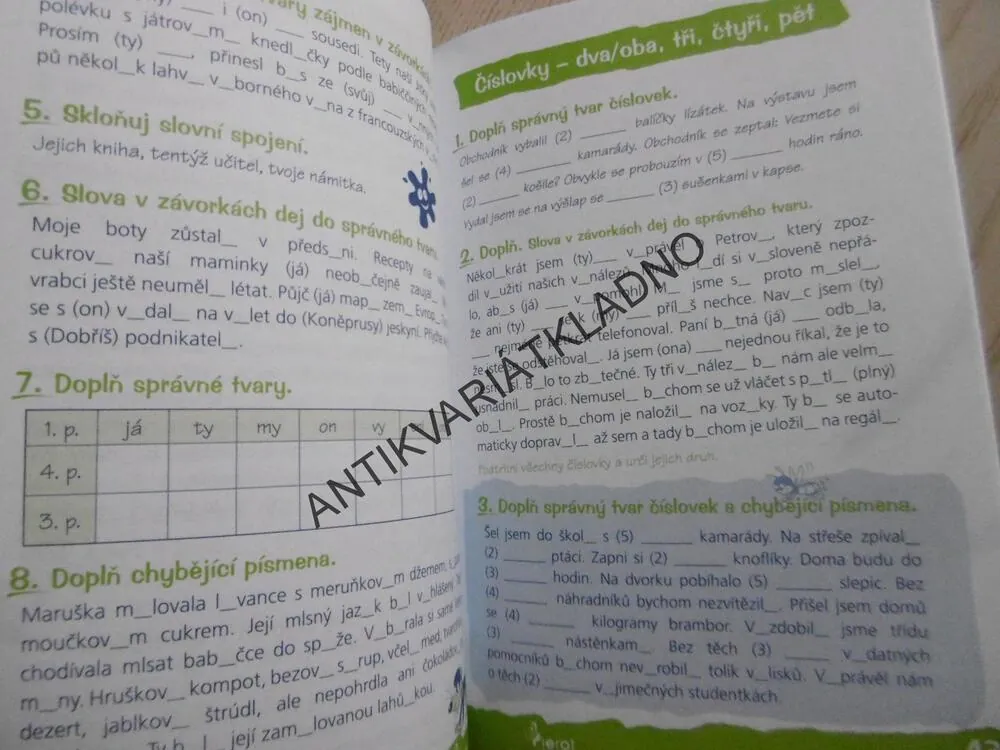 tvary zájmen v závorkách
i (on) ____ sousedi. Tety naší
polévku s játrov__m__ knedl__čky podle babiččiných
Prosím (ty) ____, přinesl b__s ze (svůj)
pů někol__k lahv__ v__borného v__na z francouzských
5. Skloňuj slovní spojení.
Jejich kniha, tentýž učitel, tvoje námitka.
6. Slova v závorkách dej do správného tvaru.
Moje boty zůstal__ v předs__ni. Recepty na
cukrov__ naší maminky (já) neob__čejně zauja
vrabci ještě neuměl__ létat. Půjč (já) map__ zem__ Evrop__
se s (on) v__dal__ na v__let do (Koněprusy) jeskyní.
s (Dobříš) podnikatel__.
7. Doplň správné tvary.
1. p. já ty my on vy
4. p.
3. p.
8. Doplň chybějící písmena.
Maruška m__lovala l__vance s meruňkov__m džemem,
moučkov__m cukrem. Její mlsný jaz__k b__l v__hlášený.
chodívala mlsat bab__čce do sp__že. V__b__rala si
m__ny. Hruškov__ kompot, bezov__ s__rup, včel__ med,
dezert, jablkov__ štrúdl, ale nepohrdla ani čokoládou
Ty b__l__ její zam__lovanou lahů__kou.
Číslovky – dva/oba, tři, čtyři, pět
1. Doplň správný tvar číslovek.
Obchodník vybalil (2) ______ balíčky lízátek. Na výstavu jsem
šel se (4) ______ kamarády. Obchodník se zeptal: Vezmete si
(2) ______ košile? Obvykle se probouzím v (5) ______ hodin ráno.
Vydal jsem se na výšlap se ______ (3) sušenkami v kapse.
2. Doplň. Slova v závorkách dej do správného tvaru.
Někol__krát jsem (ty)____ v__právěl o Petrov__, který zpoz-
dil v__užití našich v__nálezů. __dí si v__sloveně nepřá-
lo, ab__s (já) ____ v__pomohl. M__ jsme s__ proto m__slel__,
že ani (ty) ____ (my) ____ příl__š nechce. Nav__c jsem (ty)
____ nejméně pětkrát telefonoval. Paní b__tná (já) ____ odb__la,
že jste se odstěhoval__. Já jsem (ona) ____ nejednou říkal, že je to
nesm__sl. B__lo to zb__tečné. Ty tři v__nález__ b__ nám ale velm__
usnadnil__ práci. Nemusel__ b__chom se už vláčet s p__tl__ (plný)
ob__l__. Prostě b__chom je naložil__ na voz__ky. Ty b__ se auto-
maticky doprav__l__ až sem a tady b__chom je uložil__ na regál__.
Podtrhni všechny číslovky a urči jejich druh.
3. Doplň správný tvar číslovek a chybějící písmena.
Šel jsem do škol__ s (5) ______ kamarády. Na střeše zpíval__
(2) ______ ptáci. Zapni si (2) ______ knoflíky. Doma budu do
(3) ______ hodin. Na dvorku pobíhalo (5) ______ slepic. Bez
(4) ______ náhradníků bychom nezvítězil__. Přišel jsem domů
se (4) ______ kilogramy brambor. V__zdobil__ jsme třídu
(3) ______ nástěnkam__. Bez těch (3) ______ v__datných
pomocníků b__chom nev__robil__ tolik v__lisků. V__právěl nám
o těch (2) ______ v__jimečných studentkách.
ANTIKVARIÁTKLADNO